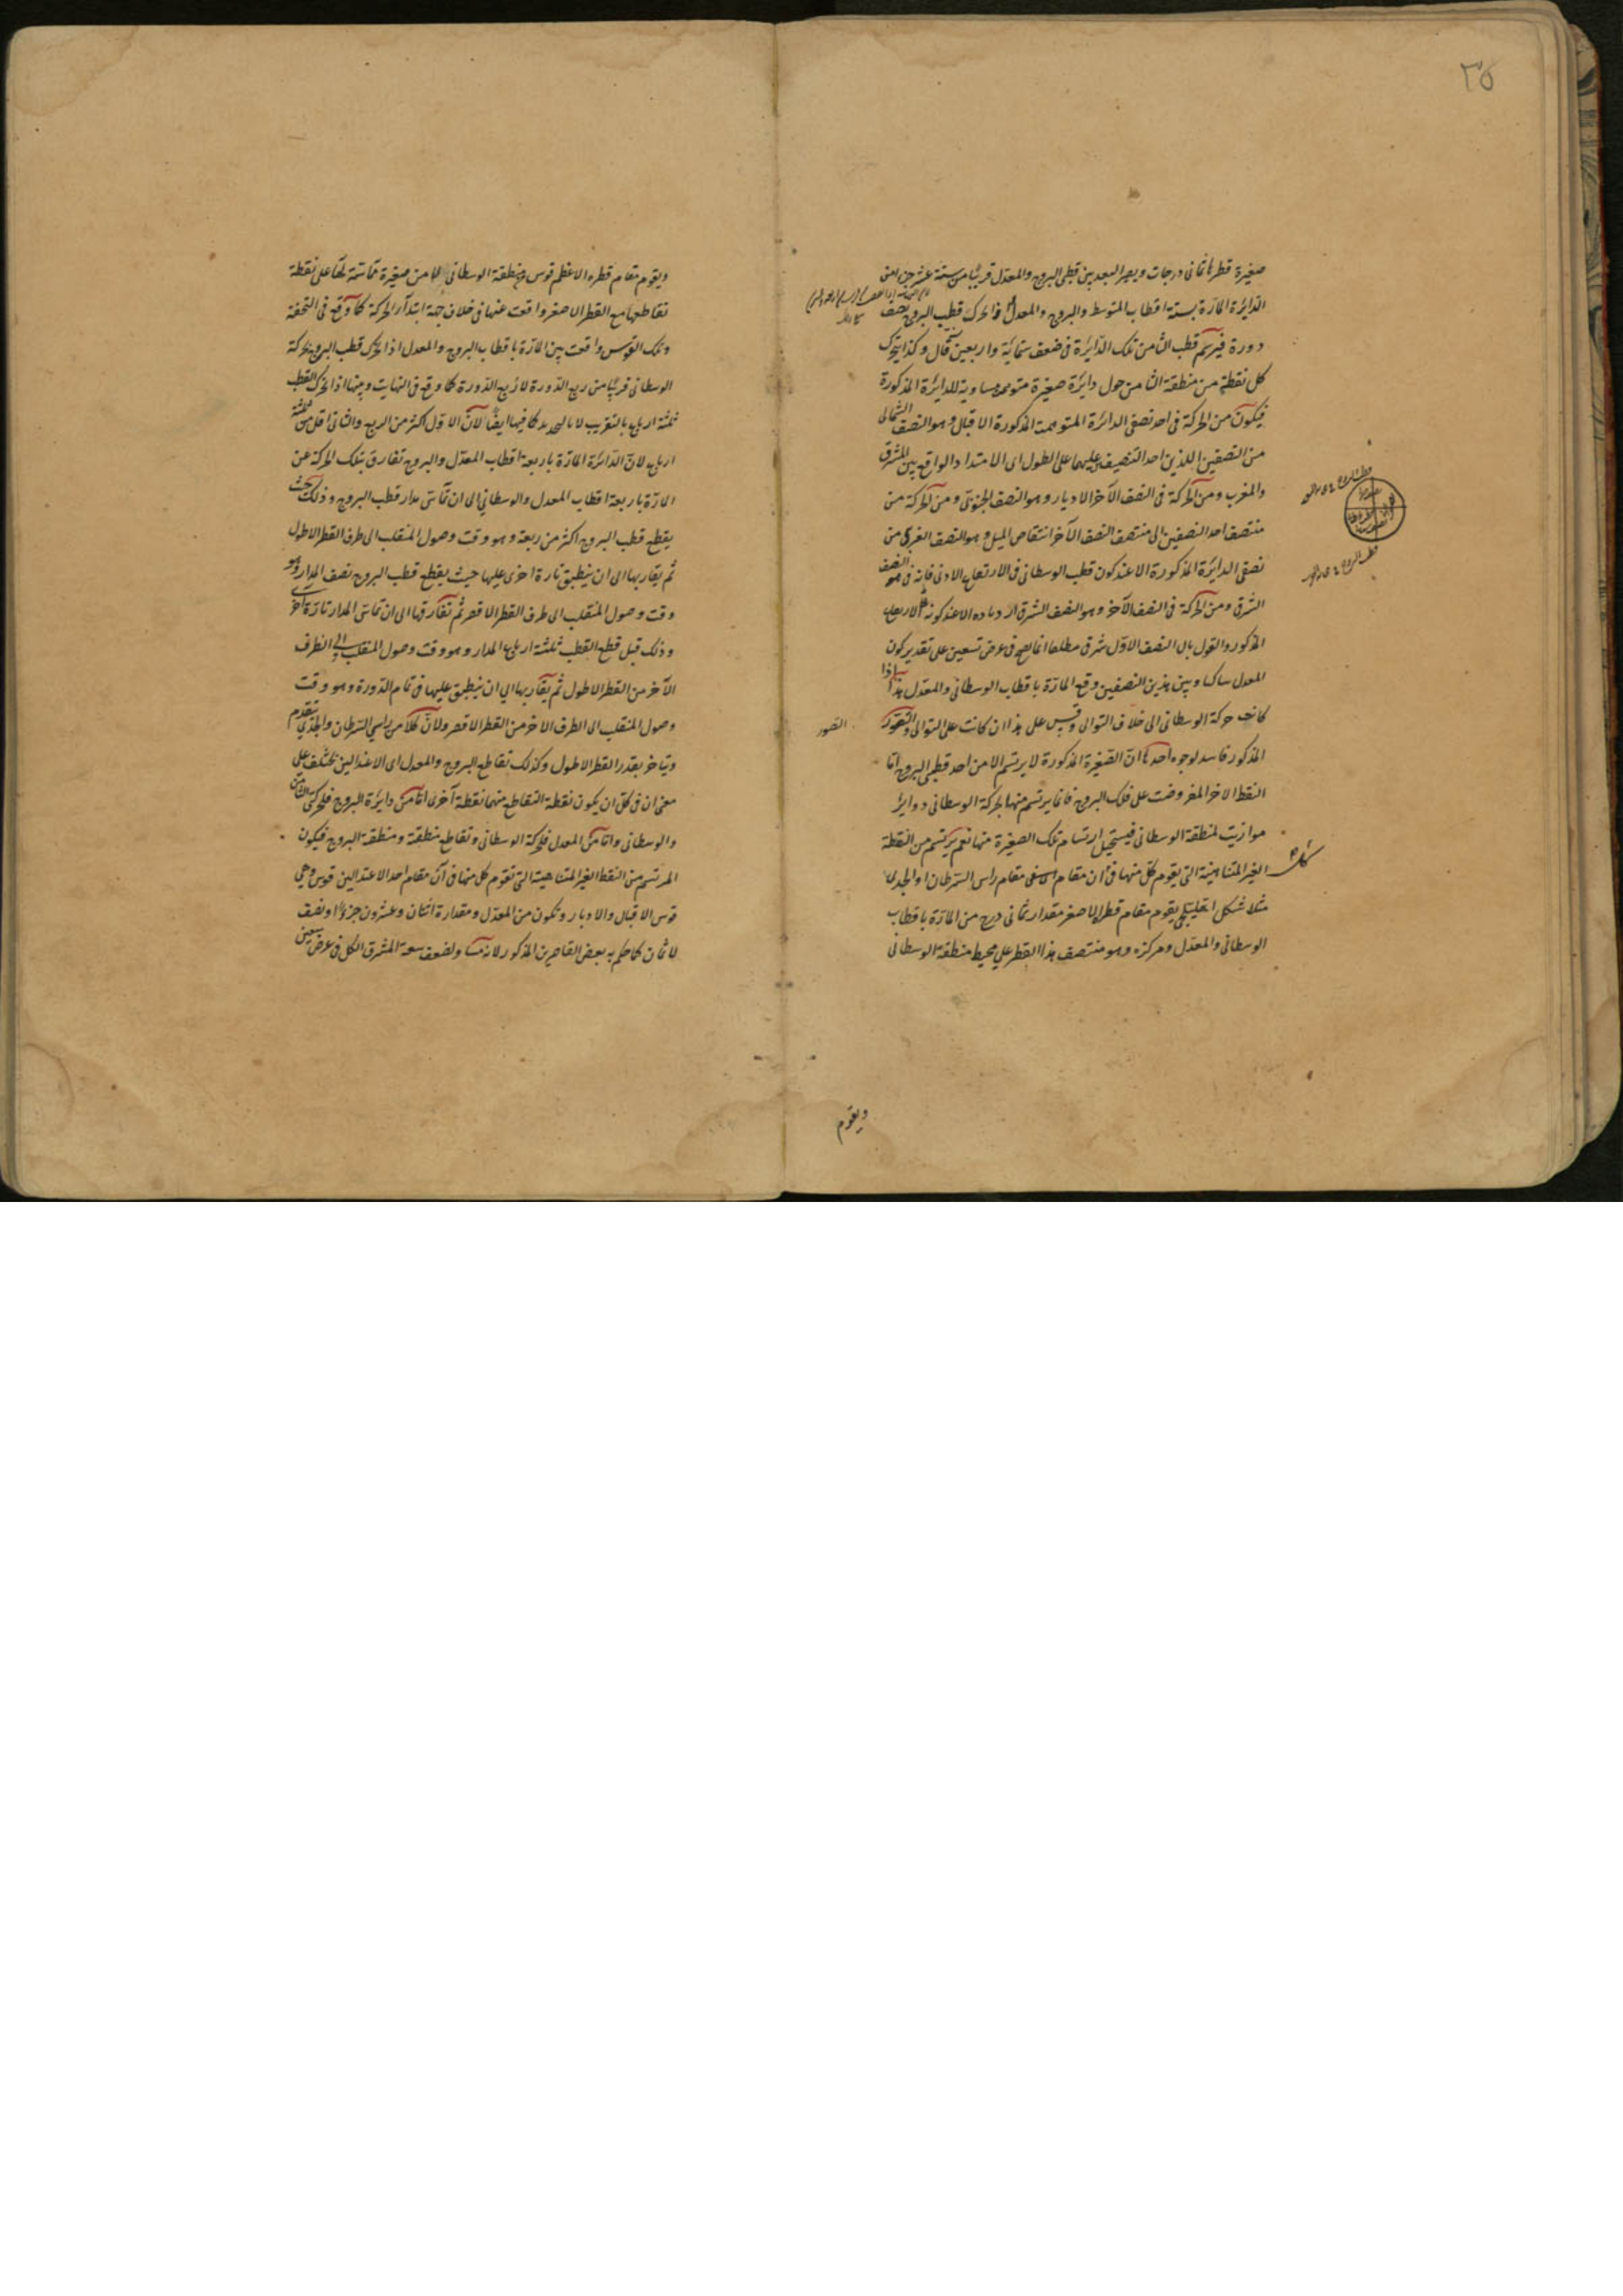 ٣٥
صغيرة قطرها ثمانى درجات ويصير البعد بين قطبى البروج والمعدل قريبا من ستة عشر جزءا من
الدائرة المارة بستة اقطاب المتوسط والبروج والمعدل فاذا تحرك قطب البروج نصف
دورة فيرسم قطب الثامن تلك الدائرة فى ضعف ستمائة واربعين قال وكذا يتحرك
كل نقطة من منطقة الثامن حول دائرة صغيرة متوهمة مساوية للدائرة المذكورة
فيكون من الحركة فى احد نصفى الدائرة المتوهمة المذكورة الاقبال وهو النصف الشمالى
من النصفين اللذين احد التنصيف عليهما على الطول اى الامتداد الواقع بين المشرق
والمغرب ومن الحركة فى النصف الآخر الادبار وهو النصف الجنوبى ومن الحركة من
منتصف احد النصفين الى منتصف النصف الآخر انتقاص الميل وهو النصف الغربى من
نصفى الدائرة المذكورة الا عند كون قطب الوسطانى فى الارتفاع الادنى فانه فى النصف
الشرقى ومن الحركة فى النصف الآخر وهو النصف الشرقى ازدياده الا عند كونه فى الارتفاع
المذكور والقول بان النصف الاول شرقى مطلقا انما يصح فى عرض تسعين على تقدير كون
المعدل ساكنا وبين هذين النصفين وقع المارة باقطاب الوسطانى والمعدل هذا اذا
كانت حركة الوسطانى الى خلاف التوالى وقس على هذا ان كانت على التوالى والتصور
المذكور فاسد لوجوه احدها ان الصغيرة المذكورة لا يرتسم الا من احد قطبى البروج اما
النقط الاخر المفروضة على فلك البروج فانما يرتسم منها بحركة الوسطانى دواير
موازية لمنطقة الوسطانى فيستحيل ارتسام تلك الصغيرة منها نعم يرتسم من النقطة
الغير المتناهية التى يقوم كل منها فى آن مقام مقام راس السرطان او الجدى
مثلا شكل اهليلجى يقوم مقام قطره الاصغر مقدار ثمانى درج من المارة باقطاب
الوسطانى والمعدل ومركزه وهو منتصف هذا القطر على محيط منطقة الوسطانى
التصور
ويقوم
ويقوم مقام قطره الاعظم قوس من منطقة الوسطانى الا من صغيرة مماسة لها على نقطة
تقاطعها مع القطر الاصغر واقعة عنها فى خلاف جهة ابتدآء الحركة كما وقع فى التحفة
وتلك القوس واقعة بين المارة باقطاب البروج والمعدل اذا تحرك قطب البروج بحركة
الوسطانى قريبا من ربع الدورة لا ربع الدورة كما وقع فى النهاية وبينها اذا تحرك القطب
ثلثة ارباع بالتقريب لا بالتحديد كما فيها ايضا لان الاول اكثر من الربع والثانى اقل من ثلثة
ارباع لان الدائرة المارة باربعة اقطاب المعدل والبروج تفارق بتلك الحركة عن
المارة باربعة اقطاب المعدل والوسطانى الى ان تماس مدار قطب البروج وذلك حيث
يقطع قطب البروج اكثر من ربعه وهو وقت وصول المنقلب الى طرف القطر الاطول
ثم يقاربها الى ان ينطبق تارة اخرى عليها حيث يقطع قطب البروج نصف المدار وهو
وقت وصول المنقلب الى طرف القطر الاقصر ثم تفارقها الى ان تماس المدار تارة اخرى
وذلك قبل قطع القطب ثلثة ارباع المدار وهو وقت وصول المنقلب الى الطرف
الآخر من القطر الاطول ثم يقاربها الى ان ينطبق عليها فى تمام الدورة وهو وقت
وصول المنقلب الى الطرف الاخر من القطر الاقصر ولان كلا من راسى السرطان والجدى يتقدم
ويتاخر بقدر القطر الاطول وكذلك تقاطع البروج والمعدل اى الاعتدالين يختلف على
معنى ان فى كل آن يكون نقطة التقاطع منهما نقطة آخرى اما من دايرة البروج فلحركتى الثامن
والوسطانى واما من المعدل فلحركة الوسطانى وتقاطع منطقة ومنطقة البروج فيكون
المرتسم من النقط الغير المتناهية التى تقوم كل منها فى آن مقام احد الاعتدالين قوس وهى
قوس الاقبال والادبار وتكون من المعدل ومقداره اثنان وعشرون جزؤا ونصف
لا ثمان كما حكم به بعض القاصرين المذكور لانه مساو لضعف سعة المشرق الكل فى عرض تسعين